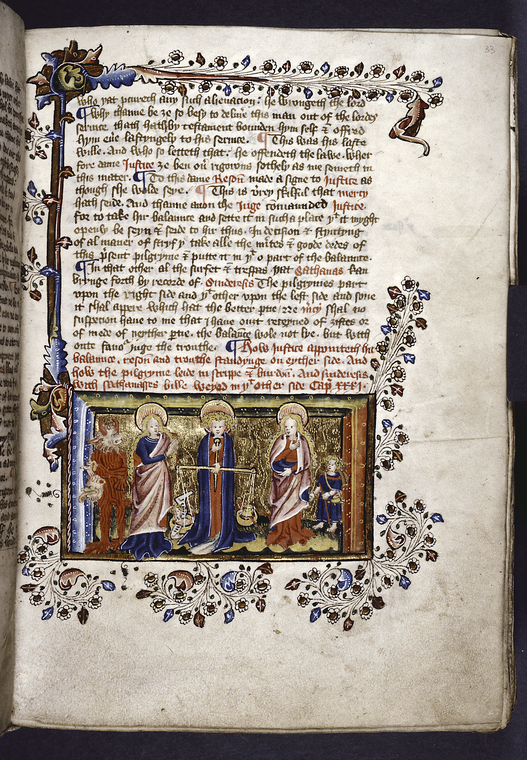 33
who yat pʳveth any such alienation: he wrongeth the lord
¶ Why thanne be ȝe so besy to delivʳe this man out of the lordes
servise that hath by testament bounden hym self & offerd
hym eve lastyngely to his servise. ¶ This was his laste
wille. And who so letteth that: he offendeth the lawe. Wher
fore dame Justice ȝe ben ovʳ rigorous sothely as me semeth in
this mater. ¶ To this dame Reson made a signe to Justice as
though she wolde seye. ¶ This is vʳey skilful that mercy
hath seide. And thanne anon the Juge comaunded Justice
for to take hir balaunce and sette it in sucha place yᵗ it myght
openly be seyn & seide to hir thus. In
of al maner of stryf yᵘ take alle the & goode dedes of
this pʳsent pilgryme & putte it in yᵉ o part of the balaunce.
¶ In that other al the surfet & trespas yat Sathanas han
bringe forth by recorde of Sinderesis The pilgrymes part
upon the right side and yᵉ other upon the left side and sone
it shal apere which hat the better For men shal no
suspecion have to me that I have out reteyned of ȝiftes or
of mede of neyther the balaunce wole not lye. but with
oute favoʳ juge the trouthe. ¶ How Justice appointeth hir
balaunce. reson and trouthe standynge on eyther side. And
how the pilgryme leide in scrippe & burdon. And Sinderesis
with Sathanases bille weyed in yᵉ other side Cap. XXXI.